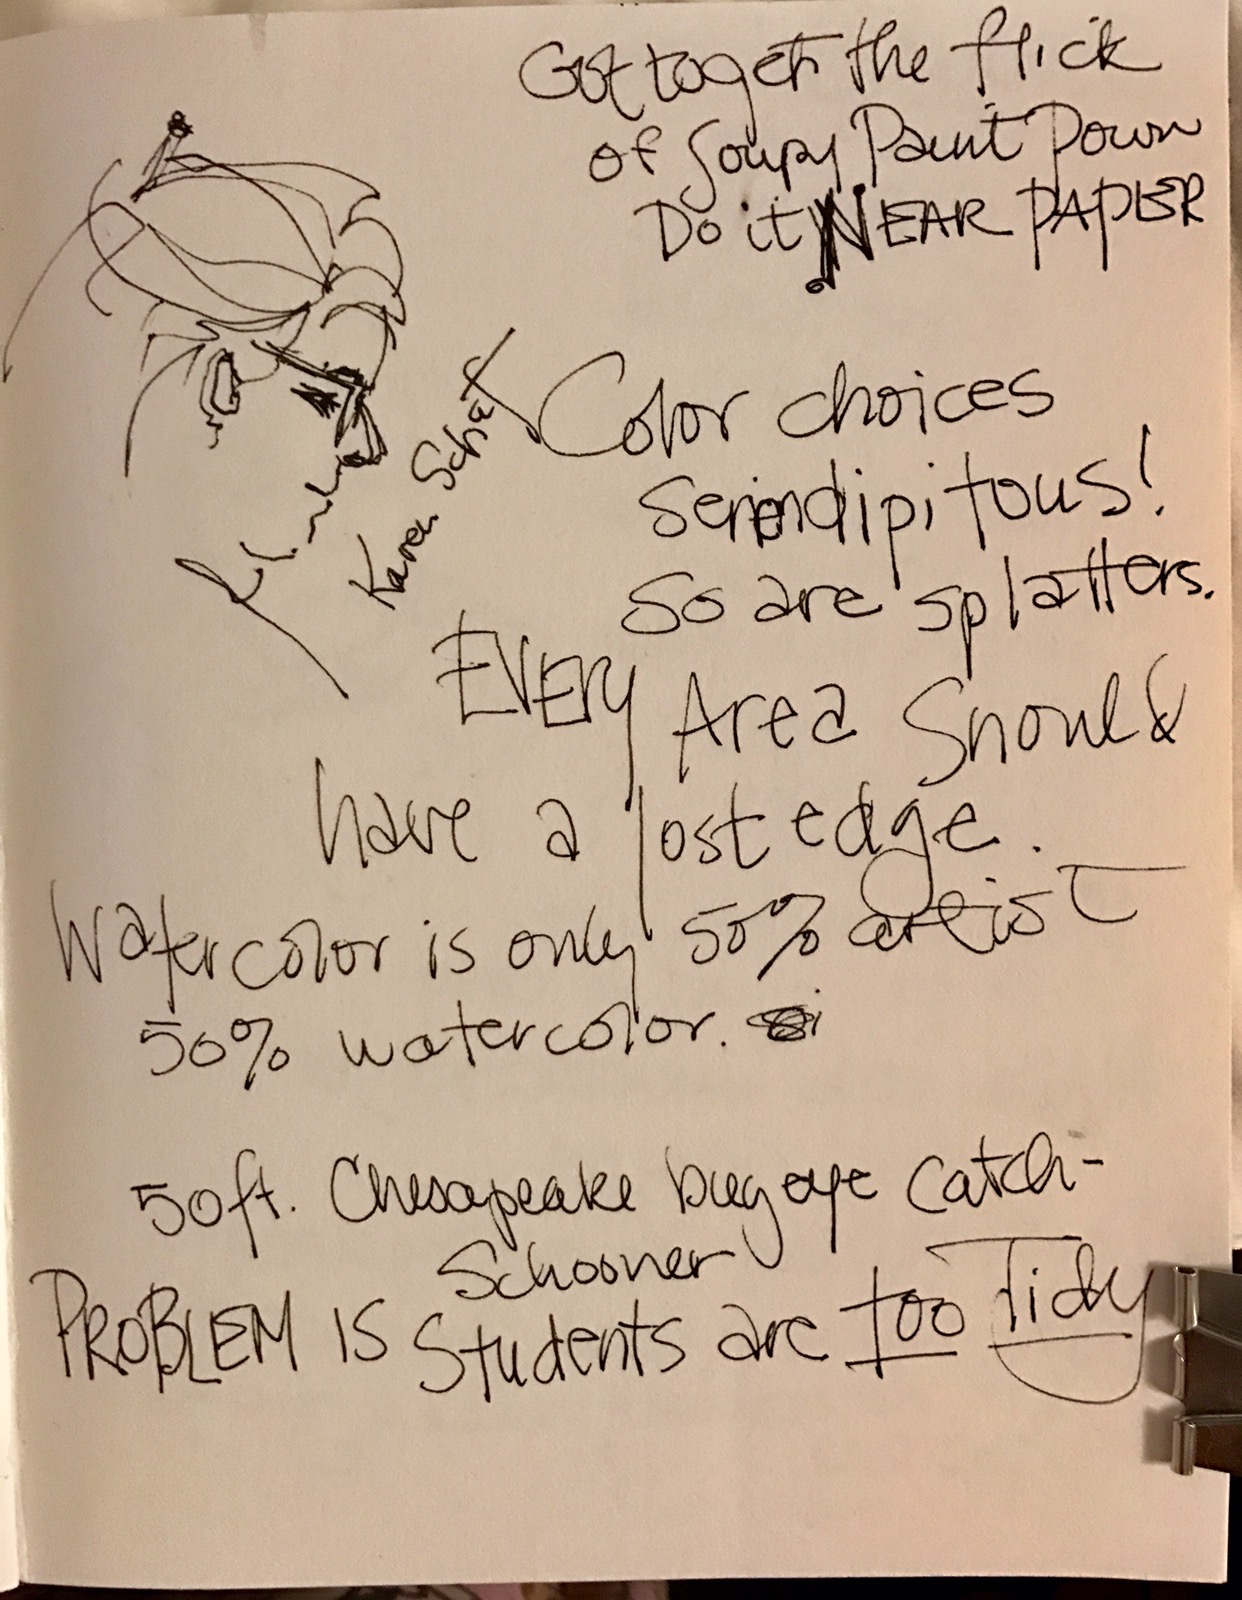 Got to get the flick
of Soupy Paint Down
Do it NEAR PAPER
Karen
Color choices
Serendipitous!
So are splatters.
EVERY Area Should
have a lost edge.
Watercolor is only 50% artist
50% watercolor.
50ft. Chesapeake bugeye catch-
Schooner
PROBLEM IS Students are too Tidy